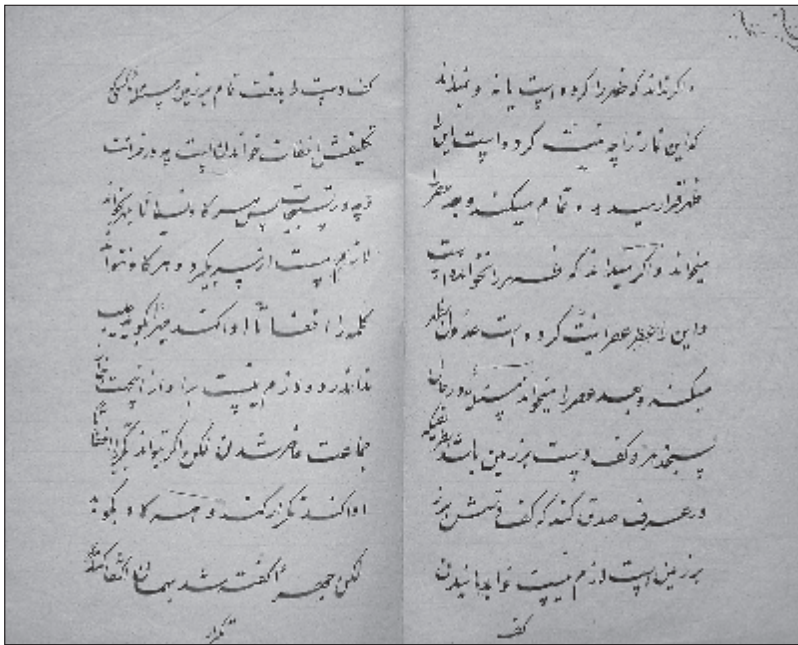 واکر نداند که ظهر را کرده است یا نه و نمیداند
که این نماز را چه نیت کرده است این را
ظهر قرار میدهد و تمام میکند و بعد عصر را
میخواند و اگر میداند که ظهر را نخوانده است
و این را عصر نیت کرده است عدول بظهر
میکند و بعد عصر را میخواند مسئله در حال
سجده هر دو کف دست بر زمین باشد
در عرف صدق کند که کف دستش بر
بر زمین است لازم نیست خوابانیدن
کف
کف دست را بدقت تمام بر زمین مسئله
تکلیفش اخفات خواندن است چه در قرائت
و چه در تسبیحات پس هر گاه نسیانا جهر بخواند
لازم نیست از سر بگیرد و هر گاه نتواند
کلمه را اخفاتا ادا کند جهر بگوید عیب
ندارد و لازم نیست بر او از این جهت
جماعت حاضر شدن لکن اگر بتواند
ادا کند تکرار کند و هر گاه بگوید
لکن جهر گفته شد بهمان اکتفا کند
تکرار